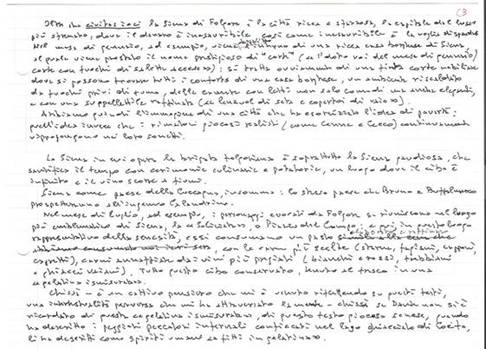 (3
Ma che civitas è ? la Siena di Folgore è la città ricca e sfarzosa, la capitale del lusso
più sfrenato, dove il denaro è inesauribile così come inesauribile è la voglia di spendere
Nel mese di gennaio, ad esempio, viene l'interno di una ricca casa borghese di Siena,
al quale viene prestato il nome prestigioso di "corte" (« I' doto voi del mese di gennaio /
corte con fuochi di salette accese »): si tratta ovviamente di una finta corte nobiliare
dove si possono trovare tutti i conforti di una casa borghese, un ambiente riscaldato
da fuochi privi di fumo, delle camere con letti non solo comodi ma anche eleganti,
e con una suppellettile raffinata (« lenzuol di seta e copertoi di vaio »).
Abbiamo quindi l'immagine di una città che ha esorcizzato l'idea di povertà:
quell'idea invece che i rimatori giocosi realisti (come Cenne e Cecco) continuamente
ripropongono nei loro sonetti.
La Siena in cui opera la brigata folgoriana è soprattutto la Siena gaudiosa, che
santifica il tempo con cerimonie culinarie e potatorie, un luogo dove il cibo è
infinito e il vino scorre a fiumi.
Siena come paese della Cuccagna, insomma: lo stesso paese che Bruno e Buffalmacco
prospetteranno all'ingenuo Calandrino.
Nel mese di luglio, ad esempio, i personaggi evocati da Folgore si riuniscono nel luogo
più emblematico di Siena, la « Salicata », o Piazza del Campo, e qui in questo luogo
rappresentativo della senesità, essi consumano un pasto
con le carni più scelte (starne, fagiani, capponi,
capretti), carni annaffiate da vini più pregiati (bianchi e rossi, trebbiani
e ghiacci vaiani). Tutto questo cibo conservato, tenuto al fresco in una
gelatina smisurata.
Chissà – è un cattivo pensiero che mi è venuto rileggendo su questi testi,
una intertestualità perversa che mi ha attraversato la mente – chissà se Dante non si è
ricordato di questa gelatina smisurata, di questo testo giocoso senese, quando
ha descritto i peggiori peccatori infernali conficcati nel lago ghiacciato di Cocito,
li ha descritti come spiriti umani fitti in gelatina.